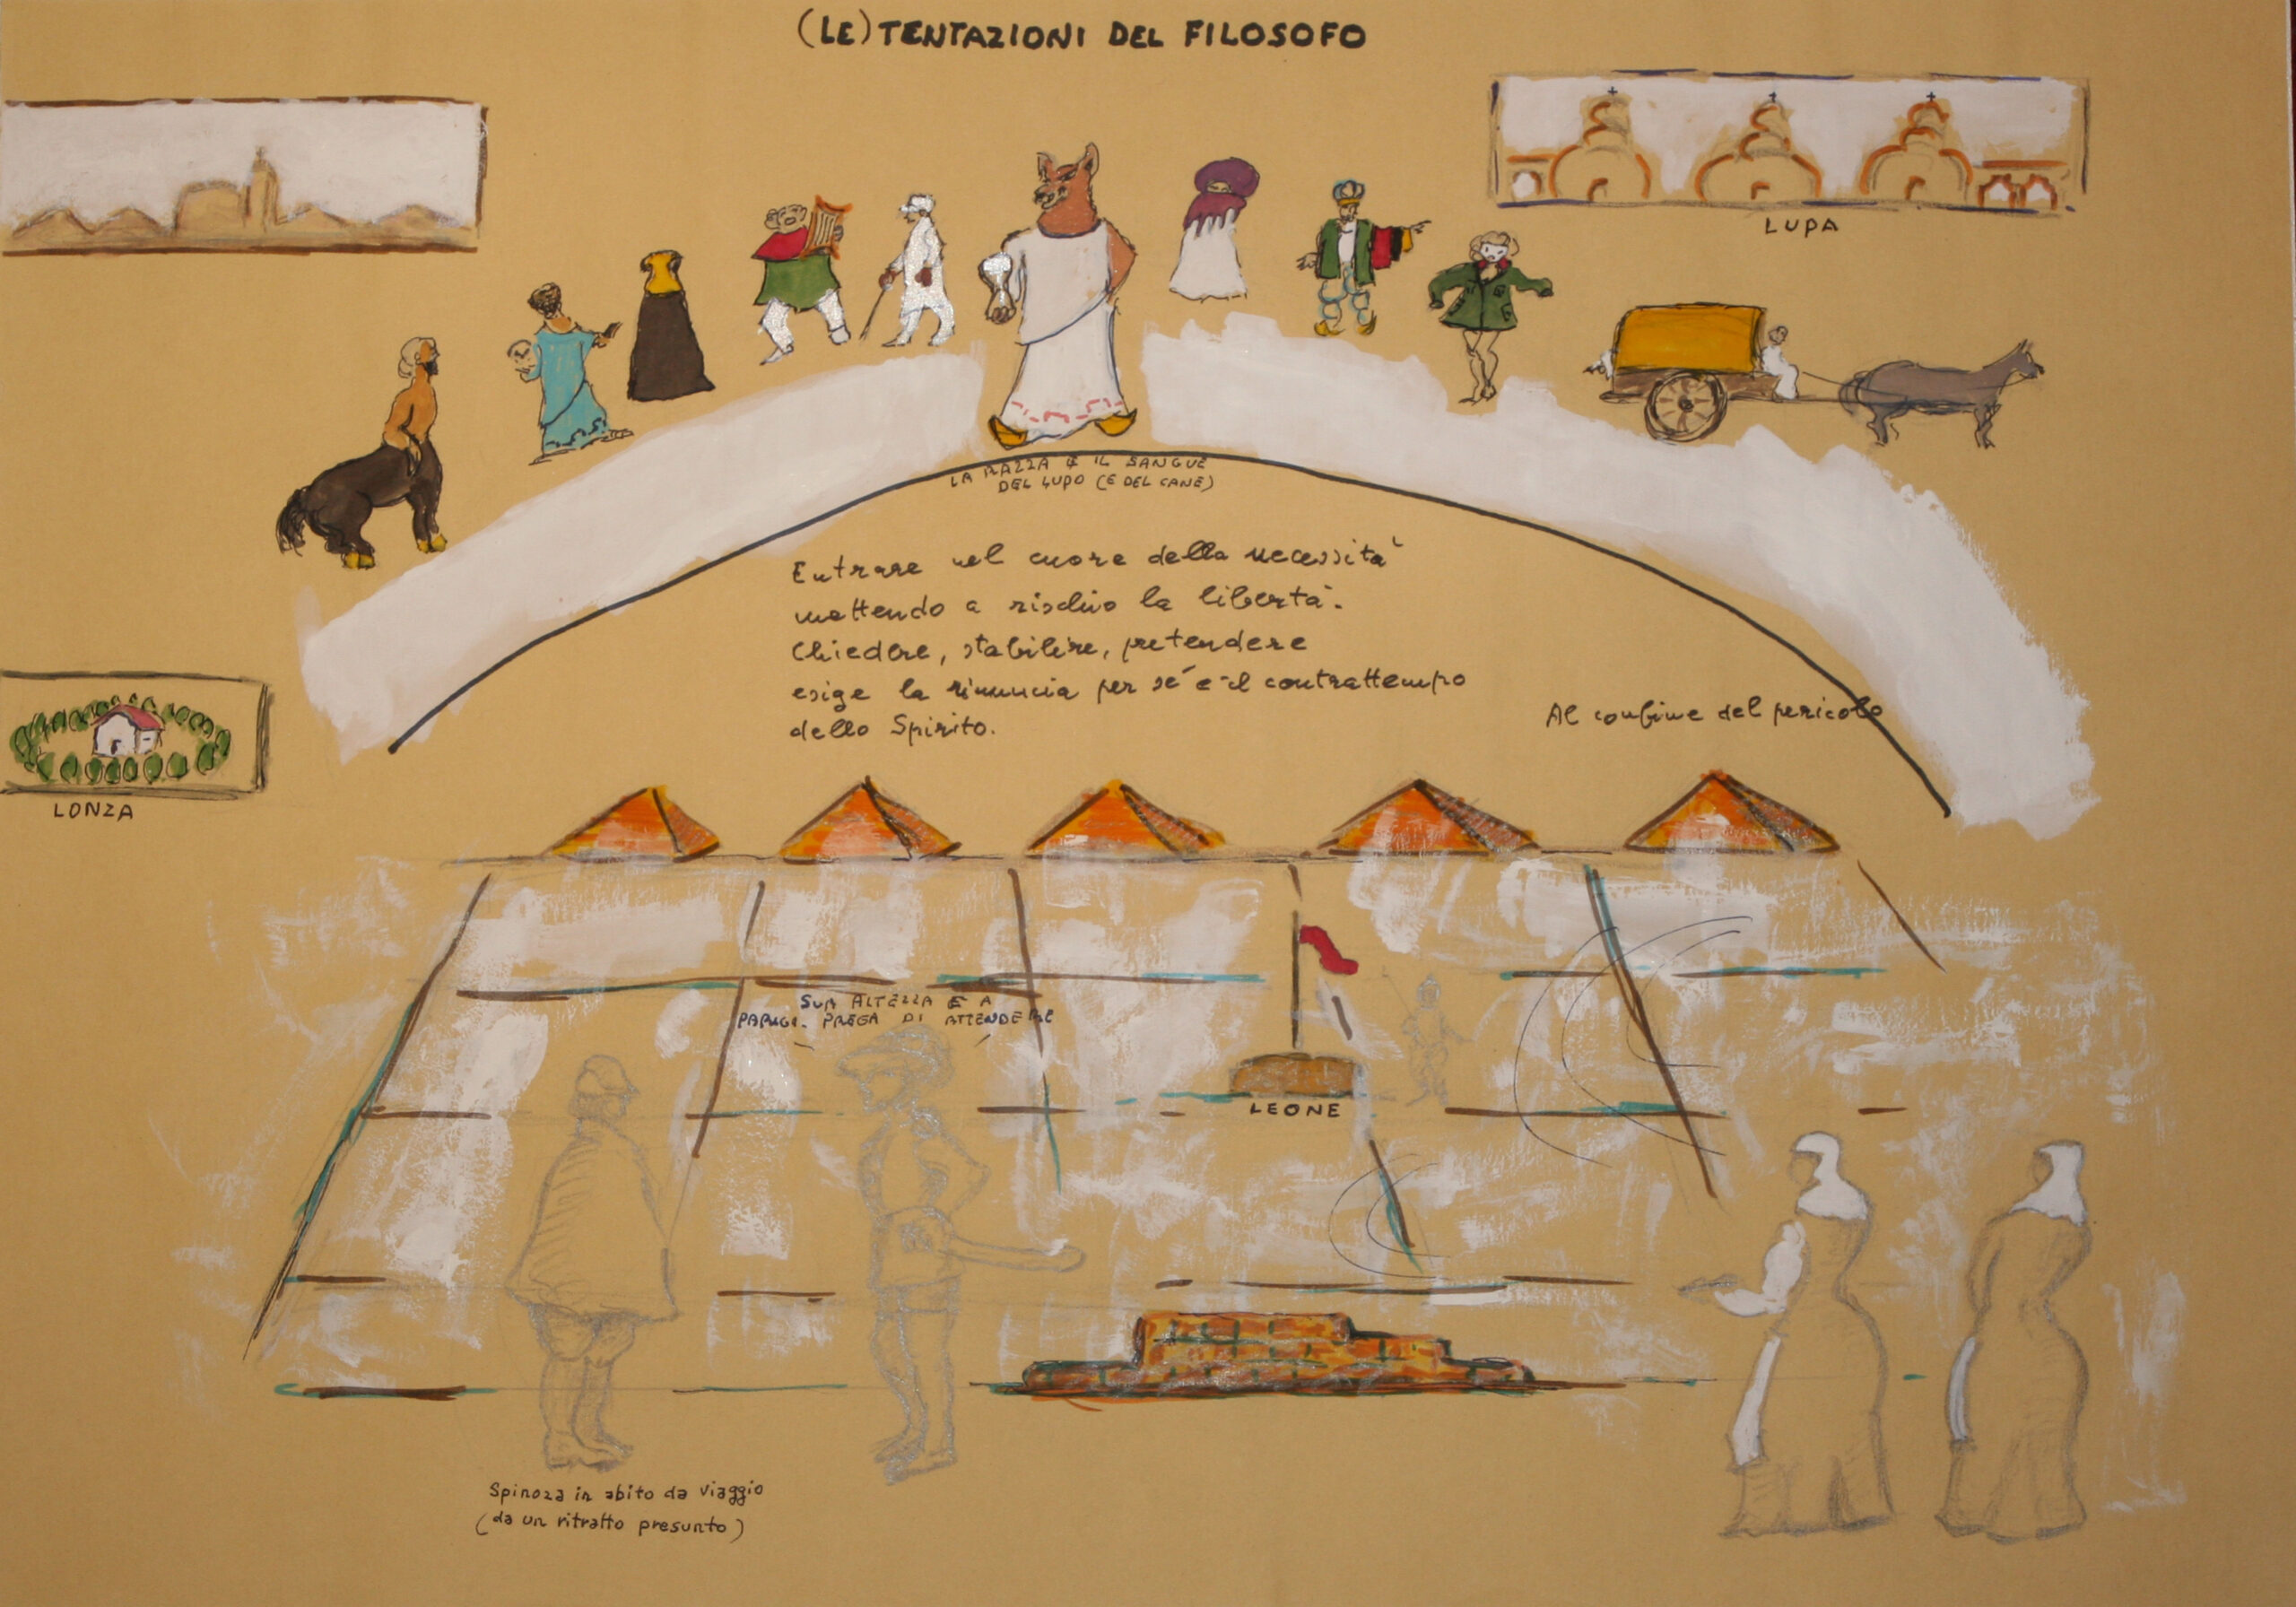 (LE) TENTAZIONI DEL FILOSOFO
LUPA
LA RAZZA E IL SANGUE
DEL LUPO (E DEL CANE)
Entrare nel cuore della necessità
mettendo a rischio la libertà.
Chiedere, stabilire, pretendere
esige la rinuncia per sé e il contrattempo
dello Spirito.
Al confine del pericolo
LONZA
SUA ALTEZZA È A
PARIGI. PREGA DI ATTENDERE
LEONE
Spinoza in abito da viaggio
(da un ritratto presunto)